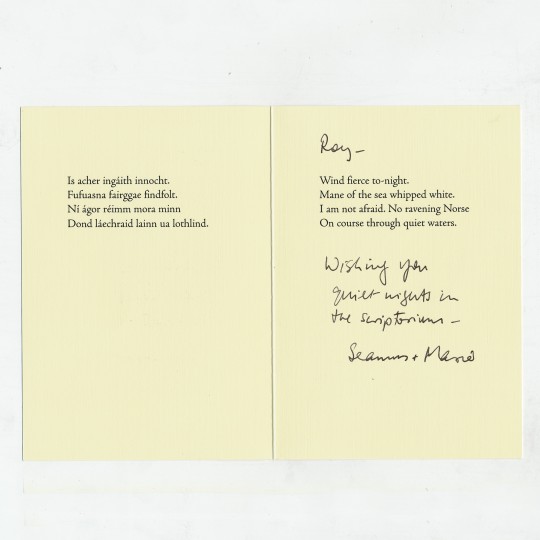 Is acher ingáith innocht.
Fufuasna fairggae findfolt.
Ní ágor réimm mora minn
Dond láechraid lainn ua lothlind.
Roy—
Wind fierce to-night.
Mane of the sea whipped white.
I am not afraid. No ravening Norse
On course through quiet waters.
Wishing you
quiet nights in
the scriptorium —
Seamus + Marie